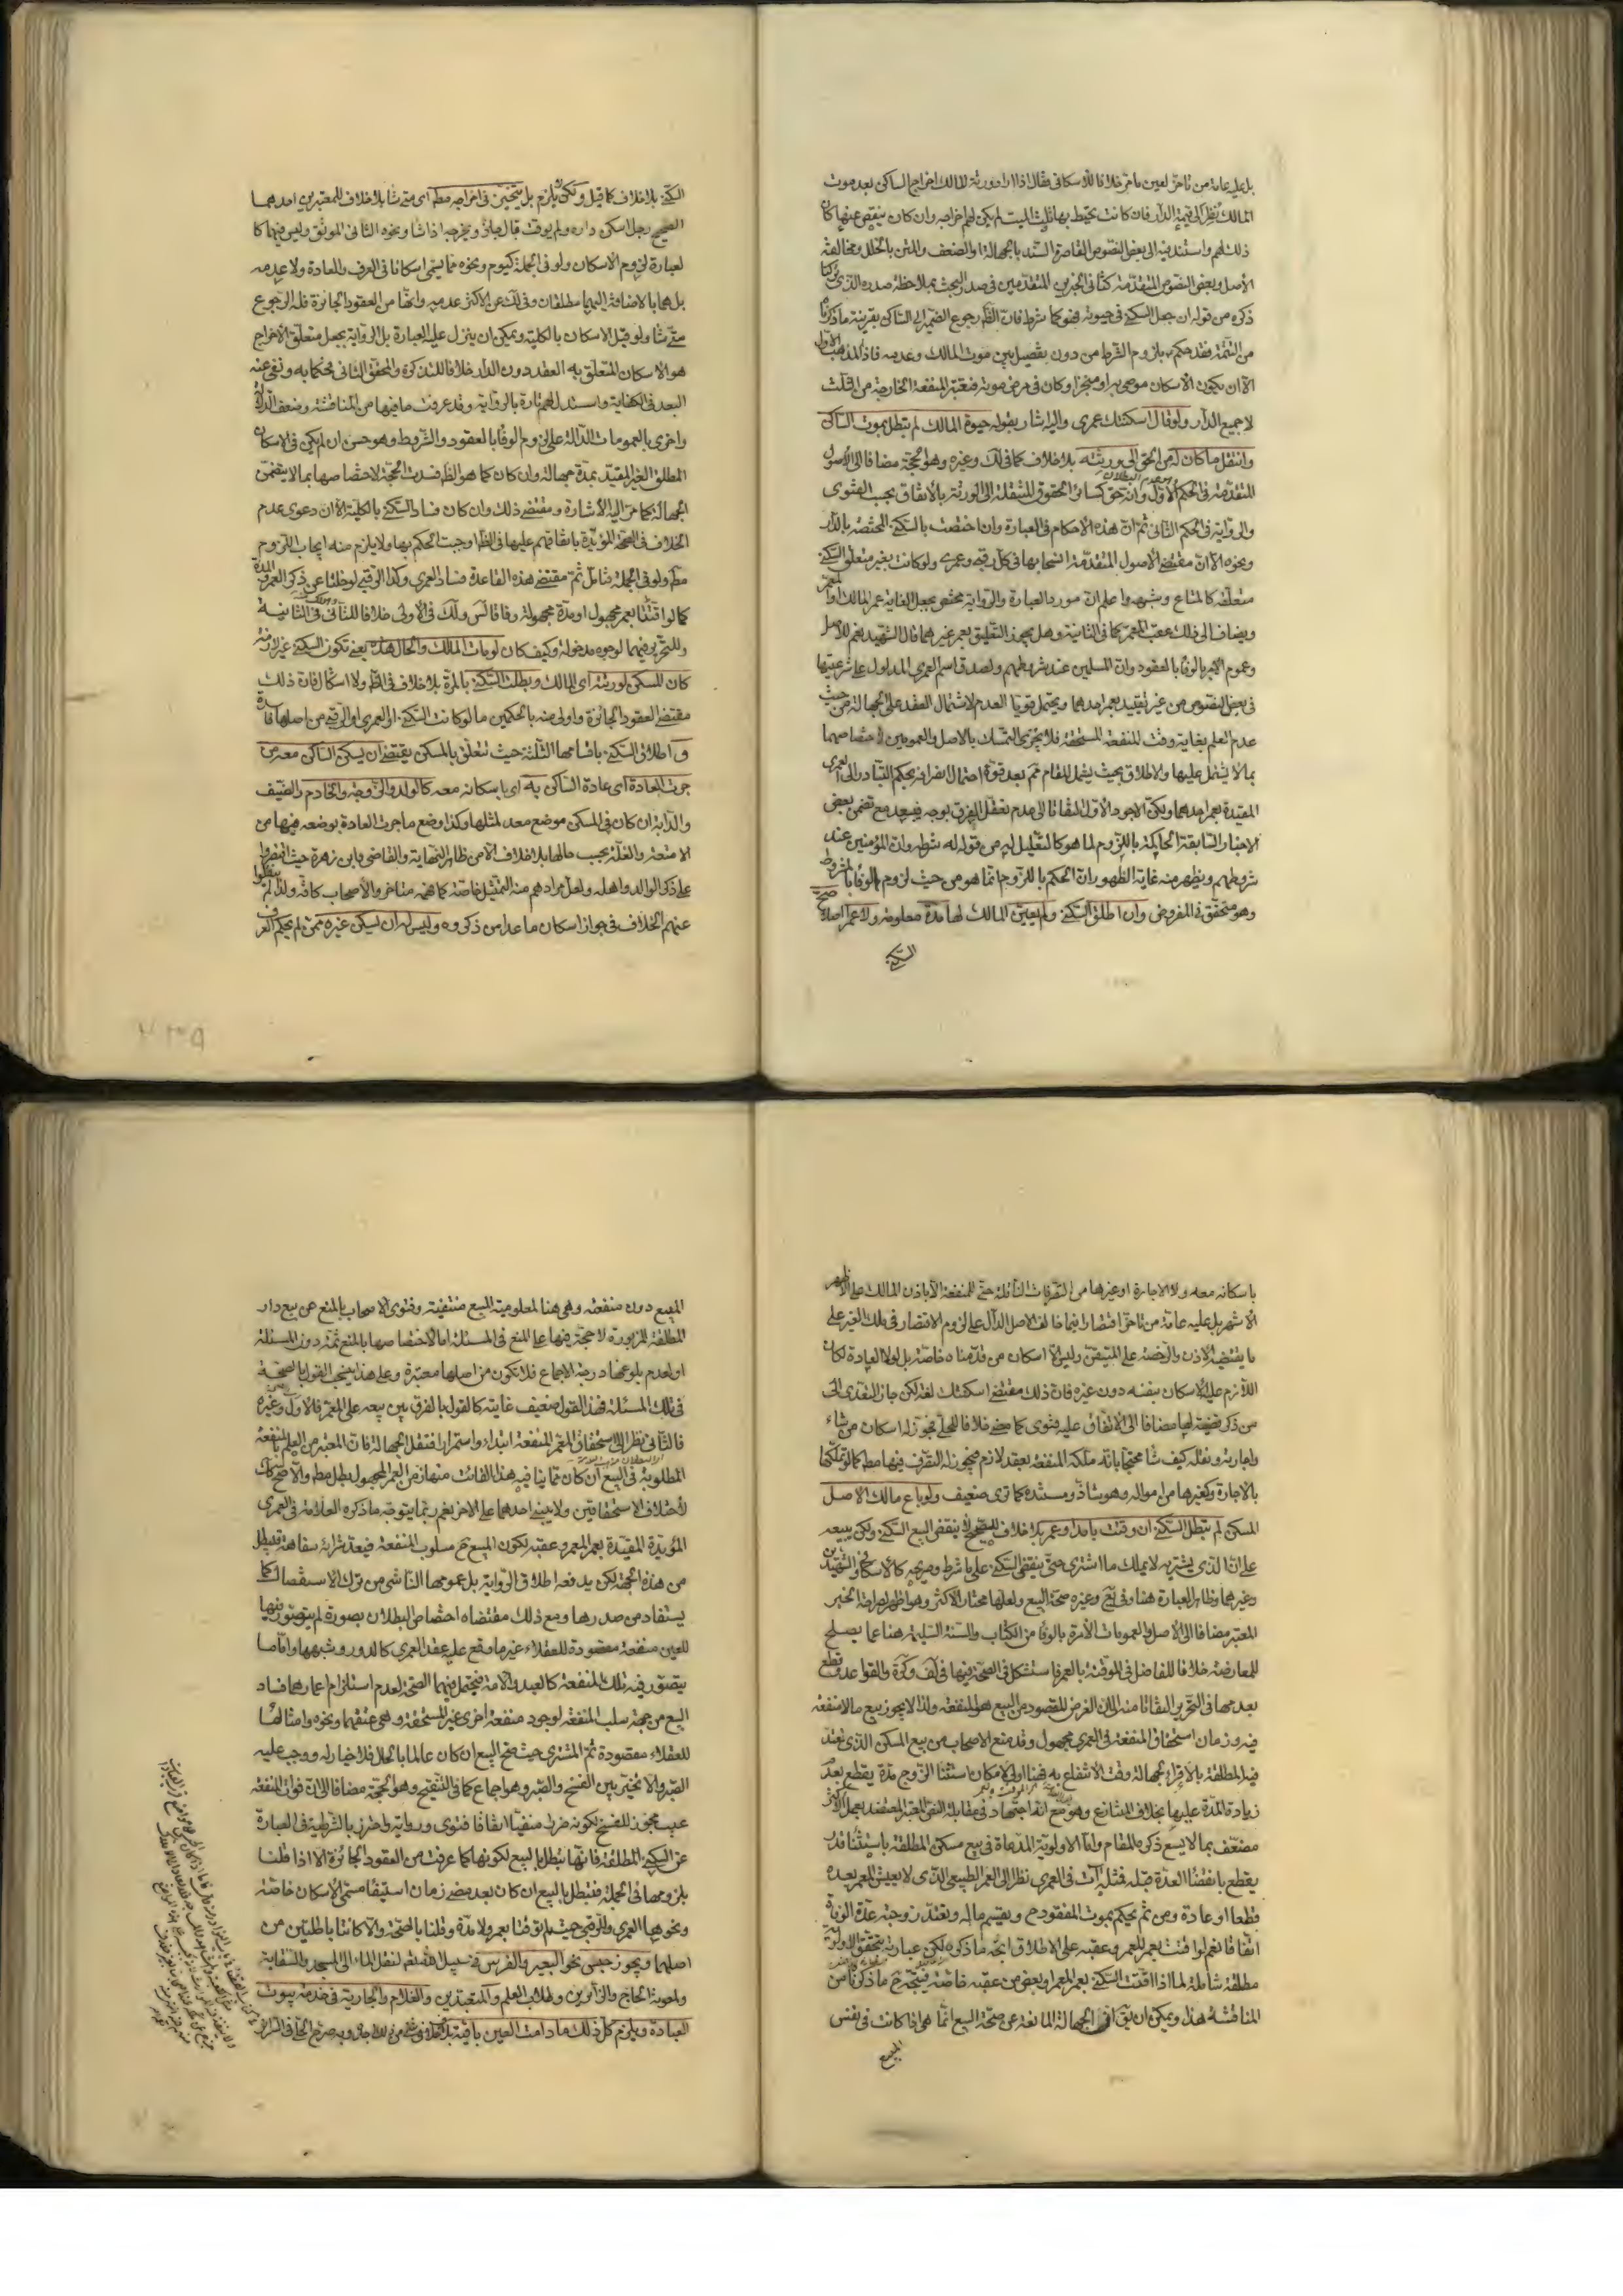 بل عليه عامة من تاخر لعين ما مر خلافا للاسكافى فقال اذا اراد ورثة المالك اخراج الساكن بعد موت
المالك نظر الى قيمة الدار فان كانت تحيط بها ثلث الميت لم يكن لهم اخراجه وان كان ينقص عنها كان
ذلك لهم واستند فيه الى بعض النصوص القاصرة السند بالجهالة او الضعف والمتن بالخلل ومخالفة
الاصل وبعض النصوص المتقدمة كثانى الخبرين المتقدمين فى صدر البحث بملاحظة صدره الذى تركنا
ذكره من قوله ان جعل السكنى فى حيوته فهو كما شرط فان الظ رجوع الضمير الى الساكن بقرينة ما ذكرنا
من التتمة فقد حكم بلزوم الشرط من دون تفصيل بين موت المالك وعدمه فاذا المذهب الاول
الا ان يكون الاسكان موصى به او منجزا وكان فى مرض موته فتعتبر المنفعة الخارجة من الثلث
لا جميع الدار ولو قال اسكنتك عمرى واليه اشار بقوله حيوة المالك لم تبطل بموت الساكن
وانتقل ما كان له من الحق الى ورثته بلا خلاف كما فى لك وغيره وهو الحجة مضافا الى الاصول
المتقدمة فى الحكم الاول وانه حق كسائر الحقوق المنتقلة الى الورثة بالاتفاق بحسب الفتوى
والرواية فى الحكم الثانى ثم ان هذه الاحكام فى العبارة وان اختصت بالسكنى المختصة بالدار
ونحوه الا ان مقتضى الاصول المتقدمة انسحابها فى كل رقبى وعمرى ولو كانت بغير متعلق السكنى
متعلقة كالمتاع وشبهه واعلم ان مورد العبارة والرواية مختص بجعل الغاية عمر المالك او المعمر
ويضاف الى ذلك عقب المعمر كما فى الثانية وهل يجوز التعليق بعمر غيرهما قال الشهيد نعم للاصل
وعموم الامر بالوفا بالعقود وان المسلمين عند شروطهم ولصدق اسم العمرى المدلول على شرعيتها
فى بعض النصوص من غير تقييد بعمر احدهما ويحتمل قويا العدم لاشتمال العقد على الجهالة من حيث
عدم العلم بغاية وقت المنفعة المستحقة فلا يجرى التمسك بالاصل والعمومين لاختصاصهما
بما لا يشتمل عليها والاطلاق بحيث يشمل المقام مم بعد قوة احتمال انصرافه بحكم التبادر الى العمرى
المقيدة بعمر احدهما ولكن الاجود الاول التفاتا الى عدم تعقل الفرق بوجه فيبعد مع تضمن بعض
الاخبار السابقة الحاكمة باللزوم لما هو كالتعليل له من قوله له شرطه وان المؤمنين عند
شروطهم ويظهر منه غاية الظهور ان الحكم باللزوم انما هو من حيث لزوم الوفا بالشروط
وهو متحقق فى المفروض وان اطلق السكنى ولم يعين المالك لها مدة معلومة ولا عمر اصلا صحت
السكنى
السكنى بلا خلاف كما قيل ولكن لا يلزم بل يتخير فى اخراجه مط اى متى شا بلا خلاف للمعتبرين احدهما
الصحيح رجل اسكن داره ولم يوقت قال جائز ويخرجه اذا شا ونحوه الثانى الموثق وليس فيهما كا
لعبارة لزوم الاسكان ولو فى الجملة كيوم ونحوه مما يسمى اسكانا فى العرف والعادة ولا عدمه
بل هما بالاضافة اليهما مطلقان وفى لك عن الاكثر عدمه وانها من العقود الجائزة فله الرجوع
متى شا ولو قبل الاسكان بالكلية ويمكن ان ينزل عليه العبارة بل الرواية بجعل متعلق الاخراج
هو الاسكان المتعلق به العقد دون الدار خلافا للتذكرة والمحقق الثانى فحكما به ونفى عنه
البعد فى الكفاية واستدل لهم تارة بالرواية وقد عرفت ما فيها من المناقشة وضعف الدلالة
واخرى بالعمومات الدالة على لزوم الوفا بالعقود والشروط وهو حسن ان لم يكن فى الاسكان
المطلق الغير المقيد بمدة جهالة وان كان كما هو الظ فسدت الحجة لاختصاصها بما لا يتضمن
الجهالة كما مر اليه الاشارة ومقتضى ذلك وان كان فساد السكنى بالكلية الا ان دعوى عدم
الخلاف فى الصحة المؤيدة باتفاقهم عليها فى الظ اوجبت الحكم بها ولا يلزم منه ايجاب اللزوم
مط ولو فى الجملة فتامل ثم مقتضى هذه القاعدة فساد العمرى وكذا الرقبى لو خلتا عن ذكر العمر والمدة
كما لو اقتتا بعمر مجهول او مدة مجهولة وفاقا لس ولك فى الاولى خلافا للثانى فى الثانية
وللتحرير فيهما لوجوه مدخولة وكيف كان لو مات المالك والحال هذه يعنى تكون السكنى غير لازمة
كان المسكن لورثته اى المالك وبطلت السكنى بالمرة بلا خلاف فى الظ ولا اشكال فان ذلك
مقتضى العقود الجائزة واولى منه بالحكمين ما لو كانت السكنى او العمرى او الرقبى من اصلها فاسدة
واطلاق السكنى باقسامها الثلثة حيث تتعلق بالمسكن يقتضى ان يسكن الساكن معه من
جرت العادة اى عادة الساكن به اى باسكانه معه كالولد والزوجة والخادم والضيف
والدابة ان كان فى المسكن موضع معد لمثلها وكذا وضع ما جرت العادة بوضعه فيها من
الامتعة والغلة بحسب حالها بلا خلاف الا من ظاهر النهاية والقاضى وابن زهرة حيث اقتصروا
على ذكر الوالد واهله ولعل مرادهم منه التمثيل خاصة كما فهمه متاخرو الاصحاب كافة ولذا لم ينقلوا
عنهم الخلاف فى جواز اسكان ما عدا من ذكروه وليس له ان يسكن غيره ممن لم يحكم العرف
باسكانه معه ولا الاجارة او غيرها من التصرفات الناقلة حتى المنفعة الا باذن المالك على الاظهر
الاشهر بل عليه عامة من تاخر اقتصارا فيما خالف الاصل الدال على لزوم الاقتصار فى ملك الغير على
ما يقتضيه الاذن والرخصة على المتيقن وليس الا اسكان من قدمناه خاصة بل لولا العادة لكان
اللازم عليه الاسكان بنفسه دون غيره فان ذلك مقتضى اسكنتك لغة لكن جاز التعدى الى
من ذكر قضية لها مضافا الى الاتفاق عليه فتوى كما مضى خلافا للحلى فجوز له اسكان من شاء
واجارته ونقله كيف شا محتجا بانه ملكه المنفعة بعقد لازم فيجوز له التصرف فيها مط كما لو تملكها
بالاجارة وكغيرها من امواله وهو شاذ ومستنده كما ترى ضعيف ولو باع مالك الاصل
المسكن لم تبطل السكنى ان وقتت بامد او عمر بلا خلاف للصحيح لا ينقض البيع السكنى ولكن يبيعه
على ان الذى يشتريه لا يملك ما اشترى حتى ينقضى السكنى على ما شرط وصريحه كالاسكافى والشهيدين
وغيرهما وظاهر العبارة هنا وفى يع وغيره صحة البيع ولعلها مختار الاكثر وهو اظهر لصراحة الخبر
المعتبر مضافا الى الاصل والعمومات الامرة بالوفا من الكتاب والسنة السليمة هنا عما يصلح
للمعارضة خلافا للفاضل فى الموقتة بالعمر فاستشكل فى الصحة فيها فى لف وكرة والقواعد وقطع
بعدمها فى التحرير التفاتا منه الى ان الغرض المقصود من البيع هو المنفعة ولذا لا يجوز بيع ما لا منفعة
فيه وزمان استحقاق المنفعة فى العمرى مجهول وقد منع الاصحاب من بيع المسكن الذى تعتد
فيه المطلقة بالاقراء لجهالة وقت الانتفاع به فهنا اولى لامكان استثنا الزوج مدة يقطع بعدم
زيادة العدة عليها بخلاف المتنازع وهو مع انه اجتهاد فى مقابلة النص المعتبر المعتضد بعمل الاكثر
مضعف بما لا يسع ذكره المقام واما الاولوية المدعاة فى بيع مسكن المطلقة باستثنا قدر
يقطع بانقضا العدة قبله فمثله آت فى العمرى نظرا الى العمر الطبيعى الذى لا يعيش المعمر بعده
قطعا او عادة ومن ثم يحكم بموت المفقود ح ويقسم ماله وتعتد زوجته عدة الوفاة
اتفاقا نعم لو اقتت بعمر المعمر وعقبه على الاطلاق اتجه ما ذكره لكن عبارته بتحقق الاولوية
مطلقة شاملة لما اذا اقتت السكنى بعمر المعمر او بعض من عقبه خاصة فيتجه ح ما ذكرنا من
المناقشة هذا ويمكن ان يق ان الجهالة المانعة عن صحة البيع انما هى اذا كانت فى نفس
المبيع
المبيع دون منفعته وهى هنا لمعلومية المبيع منتفية وفتوى الاصحاب بالمنع عن بيع دار
المطلقة المزبورة لا حجة فيها على المنع فى المسئلة اما لاختصاصها بالمنع ثمة دون المسئلة
او لعدم بلوغها درجة الاجماع فلا تكون من اصلها معتبرة وعلى هذا يتجه القول بالصحة
فى تلك المسئلة فهذا القول ضعيف غايته كالقول بالفرق بين بيعه على المعمر فالاول وغيره
فالثانى نظرا الى استحقاق المعمر المنفعة ابتداء واستمرارا فتقل الجهالة فان المعتبر من العلم بالمنفعة
المطلوبة فى البيع ان كان مما ينافيه هذا الفائت منها زمن العمر المجهول بطل مط والا صح كك
لاختلاف الاستحقاقين ولا يبنى احدهما على الاخر نعم ربما يتوجه ما ذكره العلامة فى العمرى
المؤبدة المقيدة بعمر المعمر وعقبه لكون المبيع ح مسلوب المنفعة فيعد شراؤه سفاهة فتبطل
من هذه الجهة لكن يدفعه اطلاق الرواية بل عمومها الناشى من ترك الاستفصال كما
يستفاد من صدرها ومع ذلك مقتضاه اختصاص البطلان بصورة لم يتصور فيها
للعين منفعة مقصودة للعقلاء غير ما وقع عليه عقد العمرى كالدور وشبهها واما ما
يتصور فيه تلك المنفعة كالعبد والامة فيحتمل فيهما الصحة لعدم استلزام اعمارهما فساد
البيع من جهة سلب المنفعة لوجود منفعة اخرى غير المستحقة وهى عتقهما ونحوه وامثالها
للعقلاء مقصودة ثم المشترى حيث صح البيع ان كان عالما بالحال فلا خيار له ووجب عليه
الصبر والا تخير بين الفسخ والصبر وهو اجماع كما فى التنقيح وهو الحجة مضافا الى ان فوات المنفعة
عيب مجوز للفسخ لكونه ضررا منفيا اتفاقا فتوى ورواية واحترز بالشرطية فى العبارة
عن السكنى المطلقة فانها تبطل بالبيع لكونها كما عرفت من العقود الجائزة الا اذا قلنا
بلزومها فى الجملة فتبطل بالبيع ان كان بعد مضى زمان استيفا مسمى الاسكان خاصة
ونحوها العمرى والرقبى حيث لم يوقتا بعمر ولا مدة وقلنا بالصحة والا كانتا باطلتين من
اصلهما ويجوز حبس نحو البعير والفرس فى سبيل الله تع لنقل الماء الى المسجد والسقاية
ولمعونة الحاج والزائرين وطلاب العلم والمتعبدين والغلام والجارية فى خدمة بيوت
العبادة ويلزم كل ذلك ما دامت العين باقية بلا خلاف فى شى من ذلك اجده وبه صرح الحلى فى السرائر